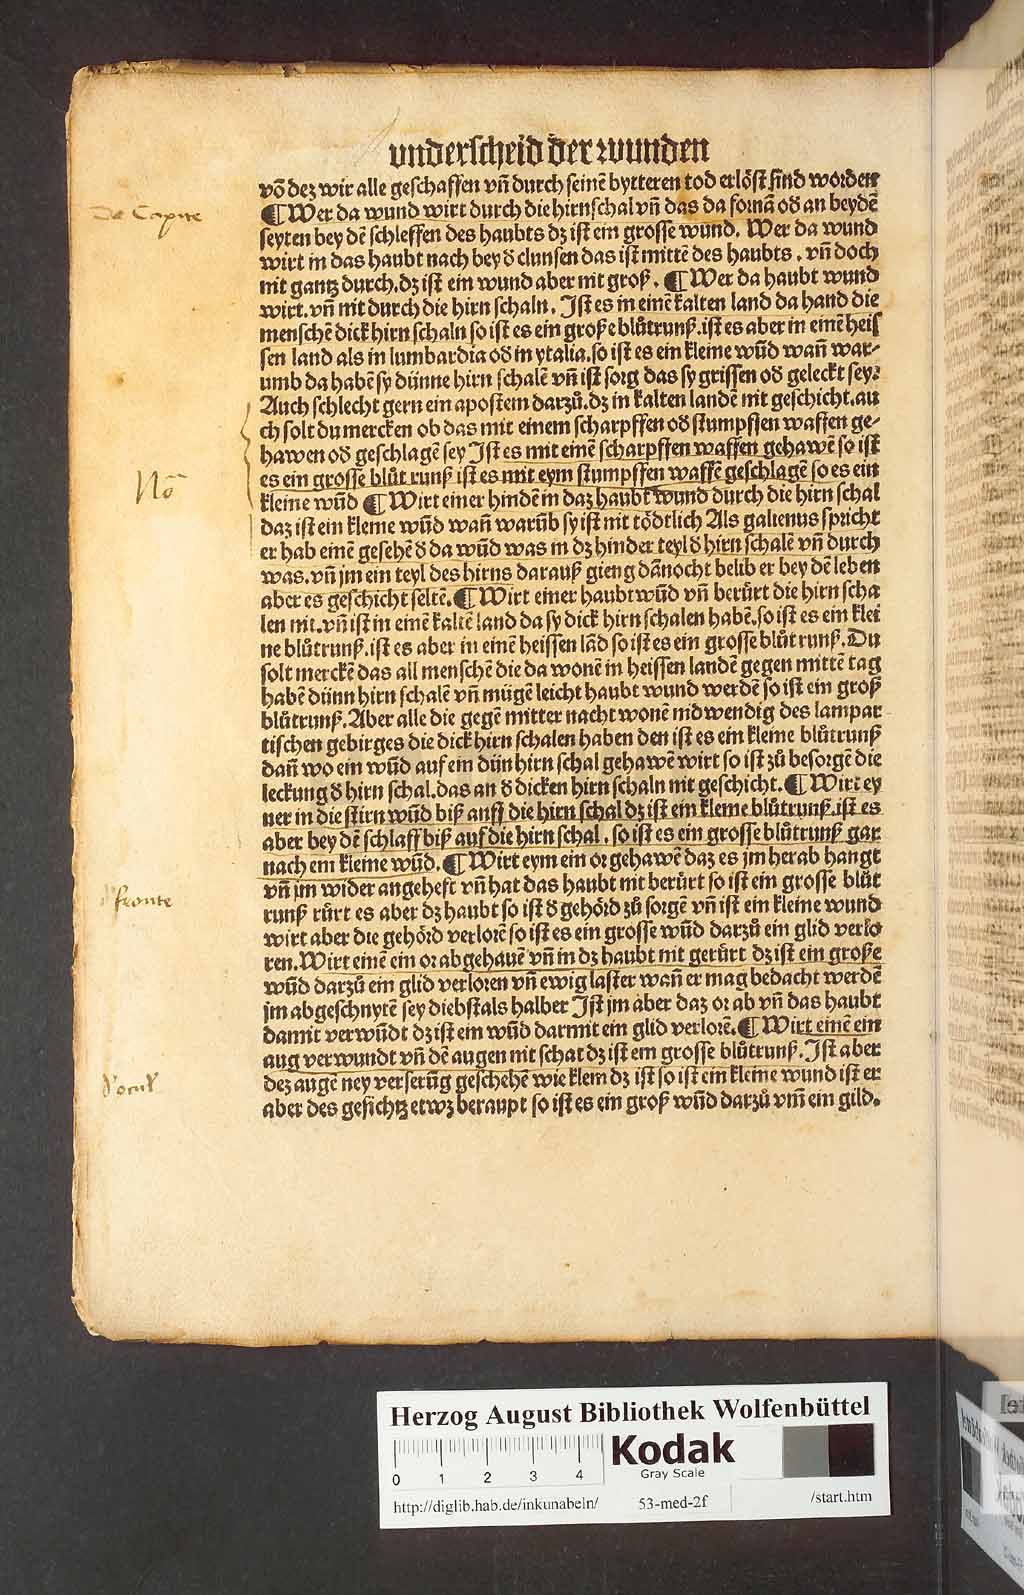 vnderscheid der wunden
võ dez wir alle geschaffen vñ durch seinē bytteren tod erlöst sind worden
De Capite
¶ Wer da wund wirt durch die hirnschal vñ das da fornā oď an beydē
seyten bey dē schleffen des haubts dz ist ein grosse wund. Wer da wund
wirt in das haubt nach bey ď clunsen das ist mittē des haubts. vñ doch
nit gantz durch. dz ist ein wund aber nit groß. ¶ Wer da haubt wund
wirt. vñ nit durch die hirn schaln. Ist es in einē kalten land da hand die
menschē dick hirn schaln so ist es ein große blůtrunß. ist es aber in einē heis
sen land als in lumbardia oď in ytalia. so ist es ein kleine wūd wañ war-
umb da habē sy dünne hirn schalē vñ ist sorg das sy grissen oď geleckt sey.
Auch schlecht gern ein apostem darzů. dz in kalten landē nit geschicht. au
ch solt du mercken ob das mit einem scharpffen oď stumpffen waffen ge-
hawen oď geschlagē sey Ist es mit einē scharpffen waffen gehawē so ist
es ein grosse blůt runß ist es mit eym stumpffen waffē geschlagē so es ein
Nō
kleine wūd ¶ Wirt einer hinden in daz haubt wund durch die hirn schal
daz ist ein kleine wūd wañ warūb sy ist nit tödtlich Als galienus spricht
er hab einē gesehē ď da wūd was in dz hinder teyl ď hirn schalē vñ durch
was. vñ jm ein teyl des hirns darauß gieng dānocht belib er bey dē leben
aber es geschicht seltē. ¶ Wirt einer haubt wūd vñ berůrt die hirn scha
len nit. vñ ist in einē kaltē land da sy dick hirn schalen habē. so ist es ein klei
ne blůtrunß. ist es aber in einē heissen lād so ist es ein grosse blůt runß. Du
solt merckē das all menschē die da wonē in heissen landē gegen mittē tag
habē dünn hirn schalē vñ mügē leicht haubt wund werdē so ist ein groß
blůtrunß. Aber alle die gegē mitter nacht wonē nidwendig des lampar
tischen gebirges die dick hirn schalen haben den ist es ein kleine blůtrunß
dañ wo ein wūd auf ein dün hirn schal gehawē wirt so ist zů besorgē die
leckung ď hirn schal. das an ď dicken hirn schaln nit geschicht. ¶ Wirt ey
ner in die stirn wūd biß auff die hirn schal dz ist ein kleine blůtrunß. ist es
aber bey dē schlaff biß auf die hirn schal. so ist es ein grosse blůtrunß gar
nach ein kleine wūd. ¶ Wirt eym ein or gehawē daz es jm herab hangt
vñ jm wider angeheft vñ hat das haubt nit berůrt so ist ein grosse blůt
d' fronte
runß růrt es aber dz haubt so ist ď gehörd zů sorgē vñ ist ein kleine wund
wirt aber die gehörd verlorē so ist es ein grosse wūd darzů ein glid verlo
ren. Wirt einē ein or abgehauē vñ in dz haubt nit gerůrt dz ist ein große
wūd darzů ein glid verloren vñ ewig laster wañ er mag bedacht werdē
jm abgeschnytē sey diebstals halber Ist jm aber daz or ab vñ das haubt
damit verwūdt dz ist ein wūd darmit ein glid verlorē. ¶ Wirt einē ein
aug verwundt vñ dē augen nit schat dz ist ein grosse blůtrunß. Ist aber
d' ocul'
dez augē ney verserūg geschehē wie klein dz ist so ist ein kleine wund ist er
aber des gesichtz etwz beraupt so ist es ein groß wūd darzů vm̃ ein gild.
Herzog August Bibliothek Wolfenbüttel
0 1 2 3 4
Kodak
Gray Scale
http://diglib.hab.de/inkunabeln/ 53-med-2f /start.htm